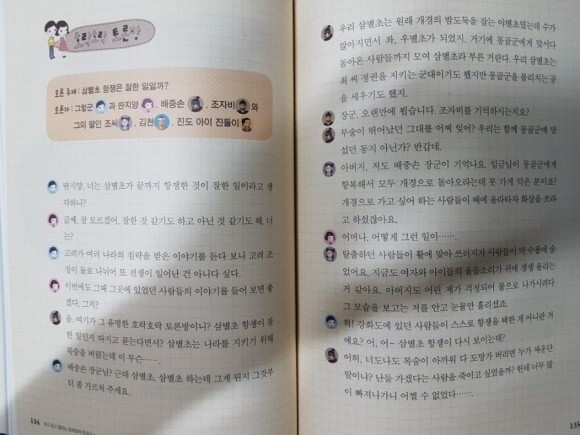 호락호락 토론방
토론 주제 : 삼별초 항쟁은 잘한 일일까?
토론자 : 그렇군 과 딴지양 , 배중손 , 조자비 와
그의 딸인 조씨 , 김천 , 진도 아이 진돌이
딴지양, 너는 삼별초가 끝까지 항쟁한 것이 잘한 일이라고 생
각하니?
글쎄, 잘 모르겠어. 잘한 것 같기도 하고 아닌 것 같기도 해. 너
는?
고려가 여러 나라의 침략을 받은 이야기를 듣다 보니 고려 조
정이 둘로 나뉘어 또 전쟁이 일어난 건 아니다 싶다.
이번에도 그때 그곳에 있었던 사람들의 이야기를 들어 보면 좋
겠다, 그치?
음, 여기가 그 유명한 호락호락 토론방이니? 삼별초 항쟁이 잘
한 일인지 따지고 묻는다면서? 삼별초는 나라를 지키기 위해
목숨을 버렸는데 이 무슨…….
배중손 장군님! 근데 삼별초, 삼별초 하는데 그게 뭔지 그것부
터 좀 가르쳐 주세요.
134
우리 삼별초는 원래 개경의 밤도둑을 잡는 야별초였는데 수가
많아지면서 좌, 우별초가 되었지. 거기에 몽골군에게 맞서다
돌아온 사람들까지 모여 삼별초라 부른 거란다. 우리 삼별초는
최 씨 정권을 지키는 군대이기도 했지만 몽골군을 물리치는 공
을 세우기도 했지.
장군, 오랜만에 뵙니다. 조자비를 기억하시는지요?
무술이 뛰어났던 그대를 어찌 잊어? 우리는 함께 몽골군에 맞
섰던 동지 아닌가? 반갑네.
아버지, 저도 배중손 장군이 기억나요. 임금님이 몽골군에게
항복해서 모두 개경으로 돌아오라는데 못 가게 막은 분이죠?
개경으로 가고 싶어 하는 사람들이 배에 올라타자 화살을 쏘라
고 하셨잖아요.
어머나, 어떻게 그런 일이…….
탈출하던 사람들이 활에 맞아 쓰러지자 사람들이 막 수풀에 숨
었어요. 지금도 여자와 아이들의 울음소리가 귀에 쟁쟁 울리는
거 같아요. 아버지도 어린 제가 걱정되어 몸으로 나가시려다
그 모습을 보고는 저를 안고 눈물만 흘리셨죠.
헉! 강화도에 있던 사람들이 스스로 항쟁을 택한 게 아니란 거
예요? 어, 어~ 삼별초 항쟁이 다시 보이는데?
어허, 너도나도 목숨이 아까워 다 도망가 버리면 누가 싸운단
말이냐? 난들 가겠다는 사람을 죽이고 싶었을까? 헌데 너무 많
이 빠져나가니 어쩔 수 없었다…….
135